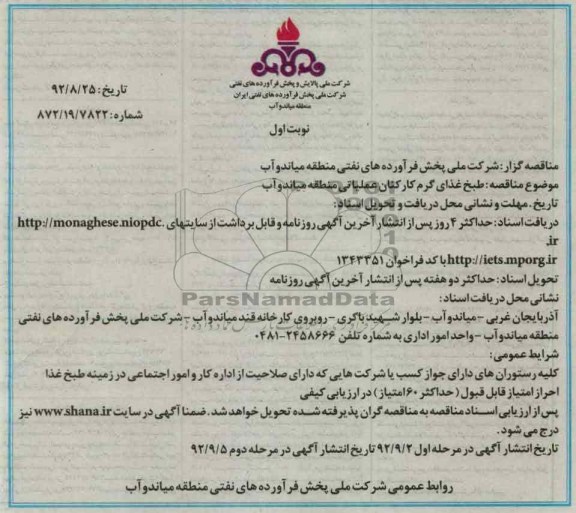 شرکت ملی پالایش و پخش فرآورده های نفتی
شرکت ملی پخش فرآورده های نفتی ایران
منطقه میاندوآب
تاریخ: ۹۲/۸/۲۵
شماره: ۸۷۲/۱۹/۷۸۲۲
نوبت اول
مناقصه گزار: شرکت ملی پخش فرآورده های نفتی منطقه میاندوآب
موضوع مناقصه: طبخ غذای گرم کارکنان عملیاتی منطقه میاندوآب
تاریخ، مهلت و نشانی محل دریافت و تحویل اسناد:
دریافت اسناد: حداکثر ۴ روز پس از انتشار آخرین آگهی روزنامه و قابل برداشت از سایتهای http://monaghese.niopdc.
ir.
http://iets.mporg.ir با کد فراخوان ۱۳۴۳۳۵۱
تحویل اسناد: حداکثر دو هفته پس از انتشار آخرین آگهی روزنامه
نشانی محل دریافت اسناد:
ParsNamadData
آذربایجان غربی - میاندوآب - بلوار شهید باکری - روبروی کارخانه قند میاندوآب - شرکت ملی پخش فرآورده های نفتی
منطقه میاندوآب - واحد امور اداری به شماره تلفن ۲۴۵۸۶۶۶-۰۴۸۱
شرایط عمومی:
کلیه رستوران های دارای جواز کسب یا شرکت هایی که دارای صلاحیت از اداره کار و امور اجتماعی در زمینه طبخ غذا
احراز امتیاز قابل قبول (حداکثر ۶۰ امتیاز) در ارزیابی کیفی
پس از ارزیابی اسناد مناقصه به مناقصه گران پذیرفته شده تحویل خواهد شد. ضمنا آگهی در سایت www.shana.ir نیز
درج می شود.
تاریخ انتشار آگهی در مرحله اول ۹۲/۹/۲ تاریخ انتشار آگهی در مرحله دوم ۹۲/۹/۵
روابط عمومی شرکت ملی پخش فرآورده های نفتی منطقه میاندوآب